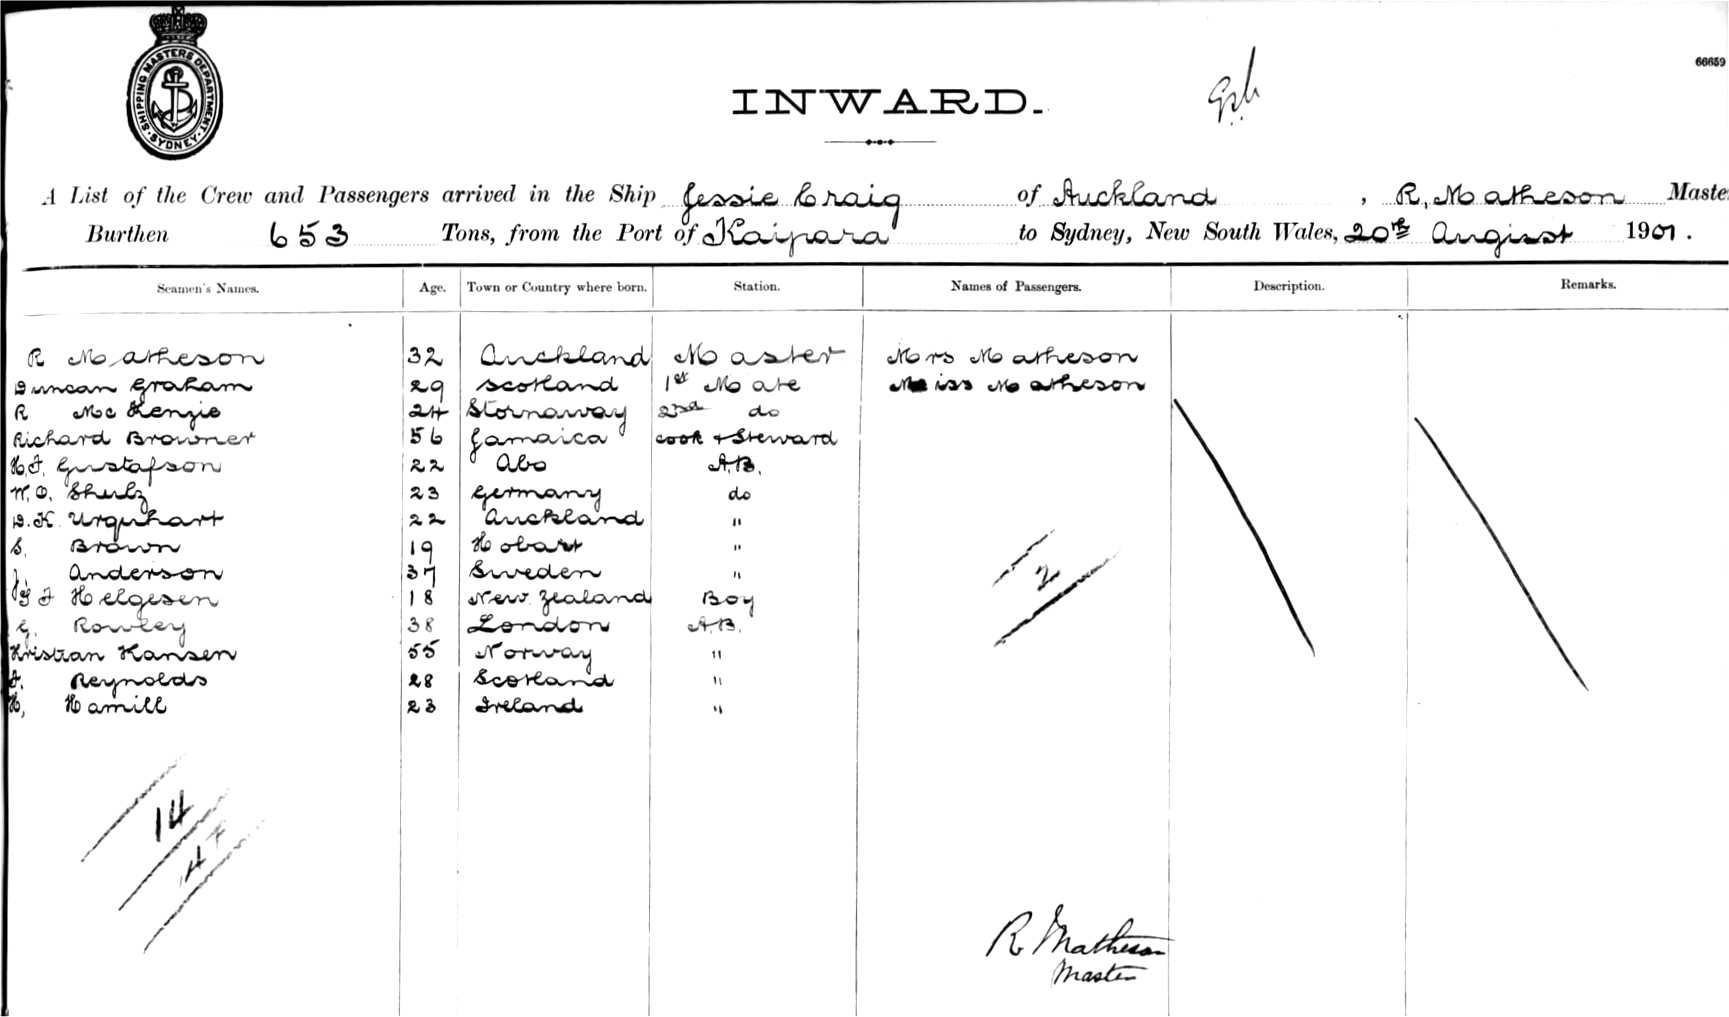 SHIPPING MASTERS DEPARTMENT. SYDNEY.
66659
INWARD.
A List of the Crew and Passengers arrived in the Ship Jessie Craig of Auckland, R. Matheson Maste
Burthen 653 Tons, from the Port of Kaipara to Sydney, New South Wales, 20th August 1901.
Seamen's Names. Age. Town or Country where born. Station. Names of Passengers. Description. Remarks.
R Matheson 32 Auckland Master Mrs Matheson
Duncan Graham 29 Scotland 1st Mate Miss Matheson
R McKenzie 24 Stornaway 2nd do
Richard Browner 56 Jamaica Cook + Steward
H.F. Gustafson 22 Abo A.B.
W.O. Shulz 23 Germany do
D.K. Urquhart 22 Auckland "
S. Brown 19 Hobart "
Anderson 37 Sweden "
F Helgesen 18 New Zealand Boy
G. Rowley 38 London A.B.
Kristian Hansen 55 Norway "
Reynolds 28 Scotland "
H. Hamill 23 Ireland "
2
14
R Matheson
Master